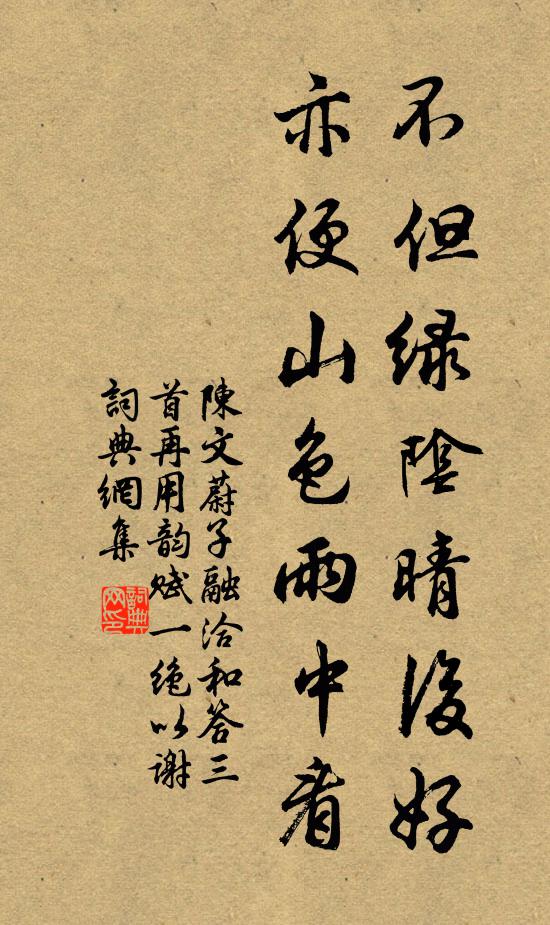 不但綠陰晴後好
亦便山色雨中看
陳文蔚子融洽和答三
首再用韵赋一绝以谢
詞典網集
詞典
网印